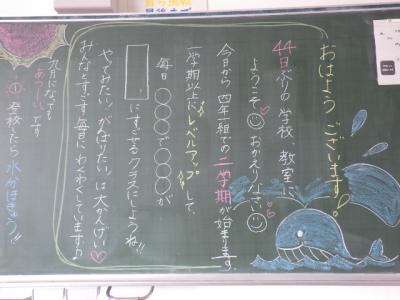 おはようございます!
44日ぶりの学校 教室に
ようこそ おかえりなさい
今日から 四年一組での二学期が始まります。
一学期以上にレベルアップして、
毎日 〇〇〇〇で〇〇〇が
にすごせるクラスにしようね!!
やってみたい、がんばりたい、は大かんげい♡
みんなとすごす毎日に わくわくしています♪
九月になっても
あつーいです
① 登校したら水分ほきゅう!!